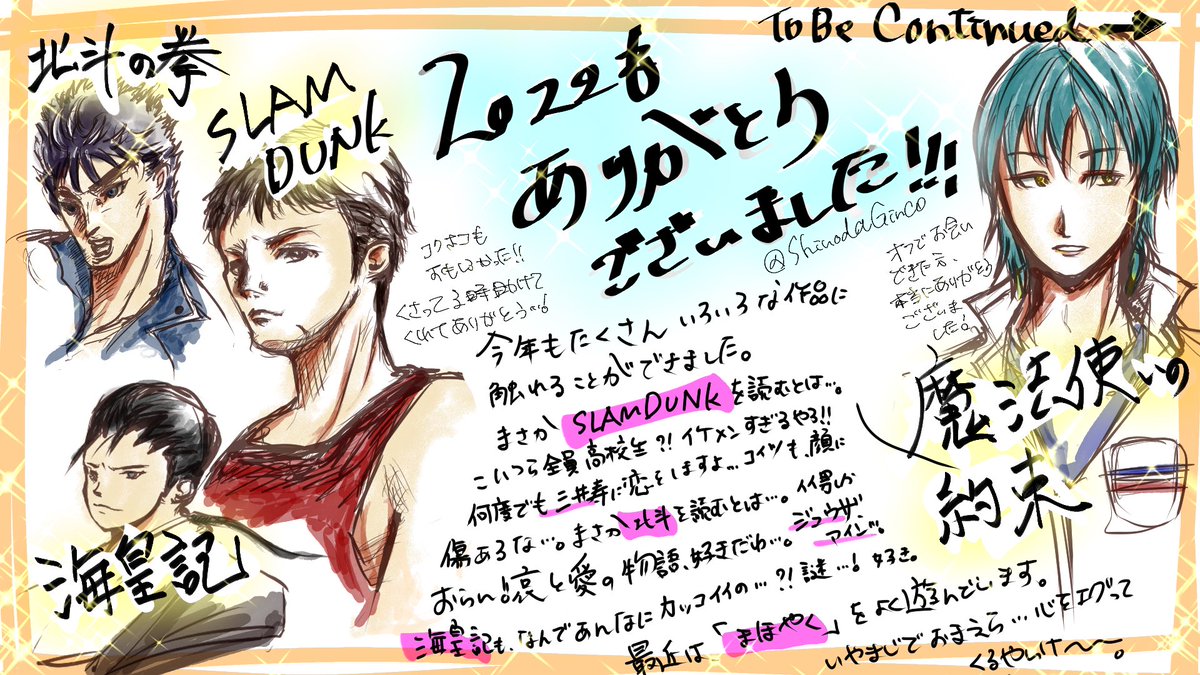 TO BE Continued→
北斗の拳
SLAM
DUNK
2022も
ありがとう
ございました!!!
@ShinodaGinco
コクホコも
おもしろかった!!
くさってる時助けて
くれてありがとう…!
オフでお会い
できた方、
本当にありがとう
ございま
した。
今年もたくさん いろいろな作品に
触れることができました。
まさか SLAMDUNKを読むとは…。
こいつら全員高校生?!イケメンすぎるやろ!!
何度でも三井寿に恋をしますよ…コイツも、顔に
傷あるな…。まさか北斗を読むとは…。イイ男しか
おらん!哀と愛の物語、好きだわ…。ジュウザ、
アイン…。
海皇記も、なんであんなにカッコイイの…?!謎…!好き。
最近は「まほやく」をよく遊んでします。
いやまじでおまえら…心をエグって
くるやいけ〜〜。
海皇記
魔法使いの
約束